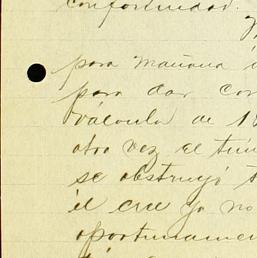 conformidad.
para mañana
para dar con
válvula de 18
otra vez el tun
se obstruyó
él cree ya no
oportunamen